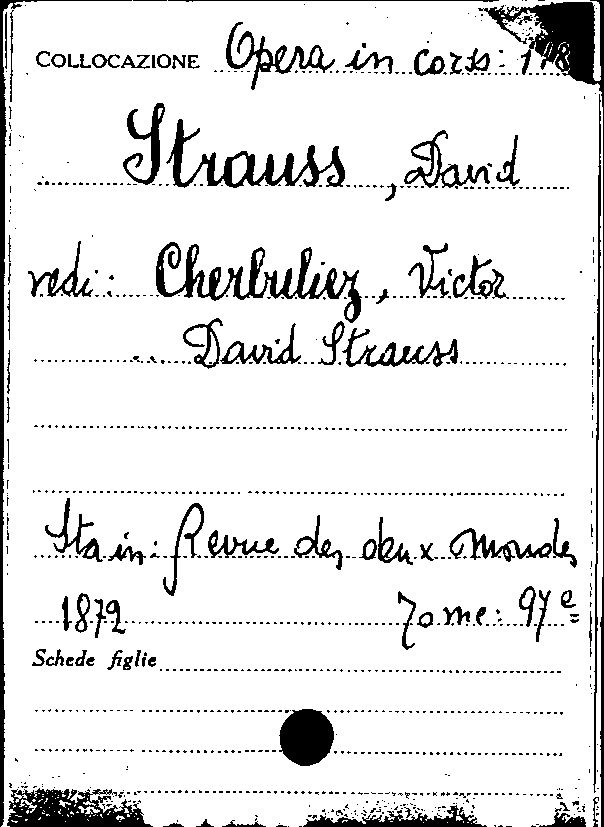 COLLOCAZIONE Opera in cors: 178
Strauss, David
vedi: Cherbuliez, Victor
... David Strauss
Sta in: Revue des deux Mondes
1872 Tome: 97e
Schede figlie